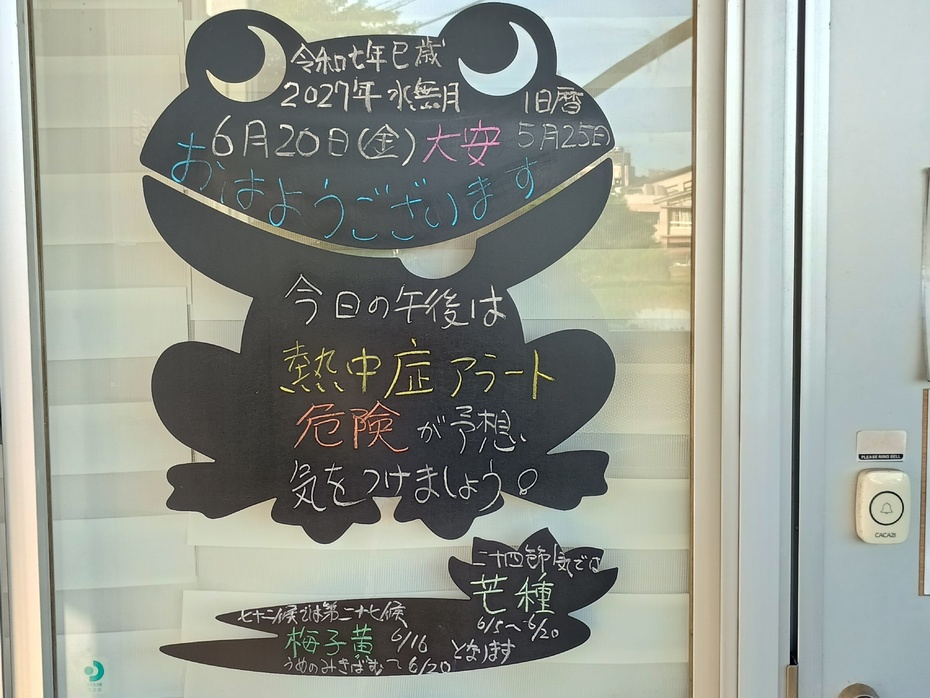 令和七年巳歳
2027年 水無月
旧暦
6月20日(金) 大安 5月25日
おはようございます
今日の午後は
熱中症アラート
危険が予想
気をつけましょう。
二十四節気では
芒種
6/5〜6/20
となります
七十二候では第二十七候
梅子黄 6/16
うめのみきばむ〜6/20
PLEASE RING BELL
CACAZI